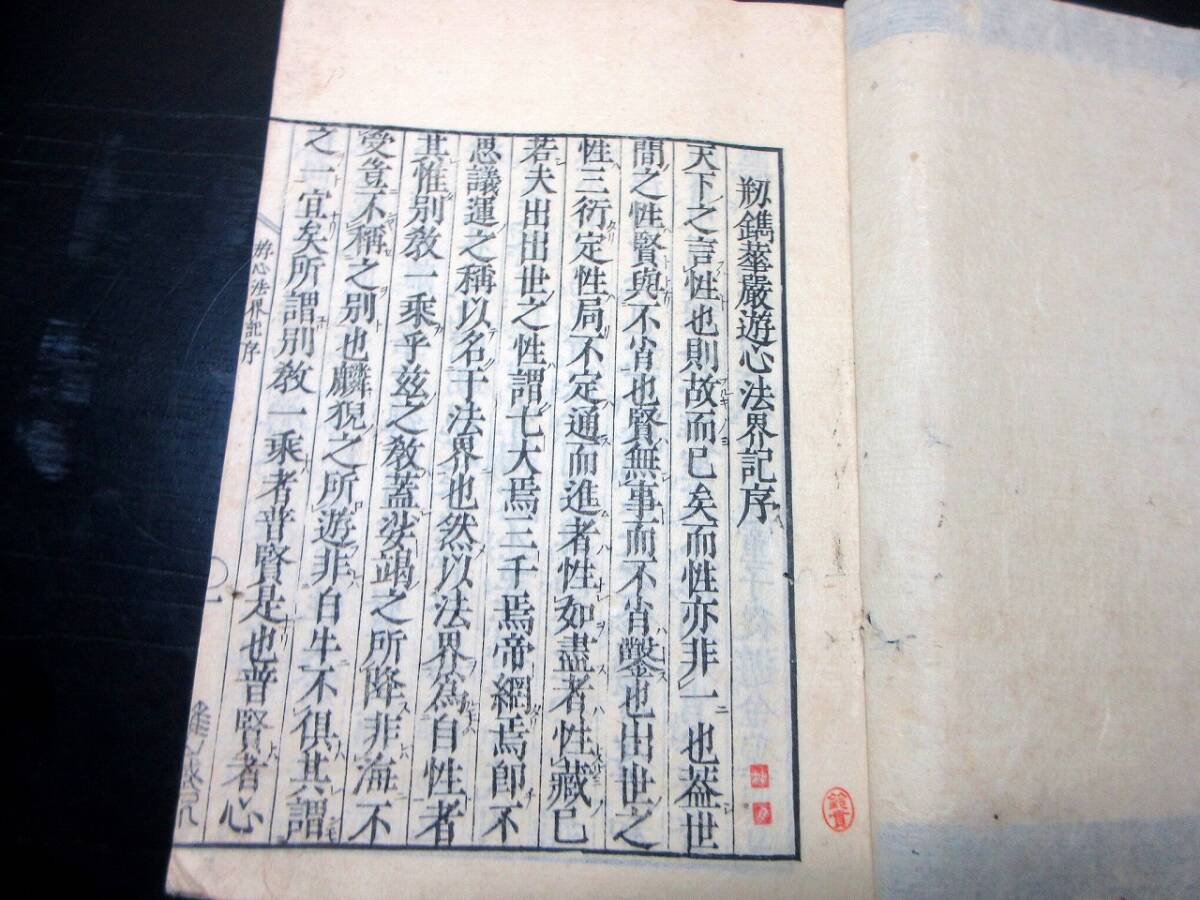 刱鐫華嚴遊心法界記序
天下之言性也則故而已矣而性亦非一也葢世
間之性賢與不肖也賢無事而不肖鑿也出世之
性三衍定性局不定通而進者性如盡者性藏已
若夫出出世之性謂七大焉三千焉帝網焉卽不
思議運之稱以名于法界也然以法界爲自性者
其惟別教一乘乎茲之教蓋娑竭之所降非海不
受豈不稱之別也麟猊之所遊非白牛不俱其謂
之一宜矣所謂別教一乘者普賢是也普賢者心
遊心法界記序